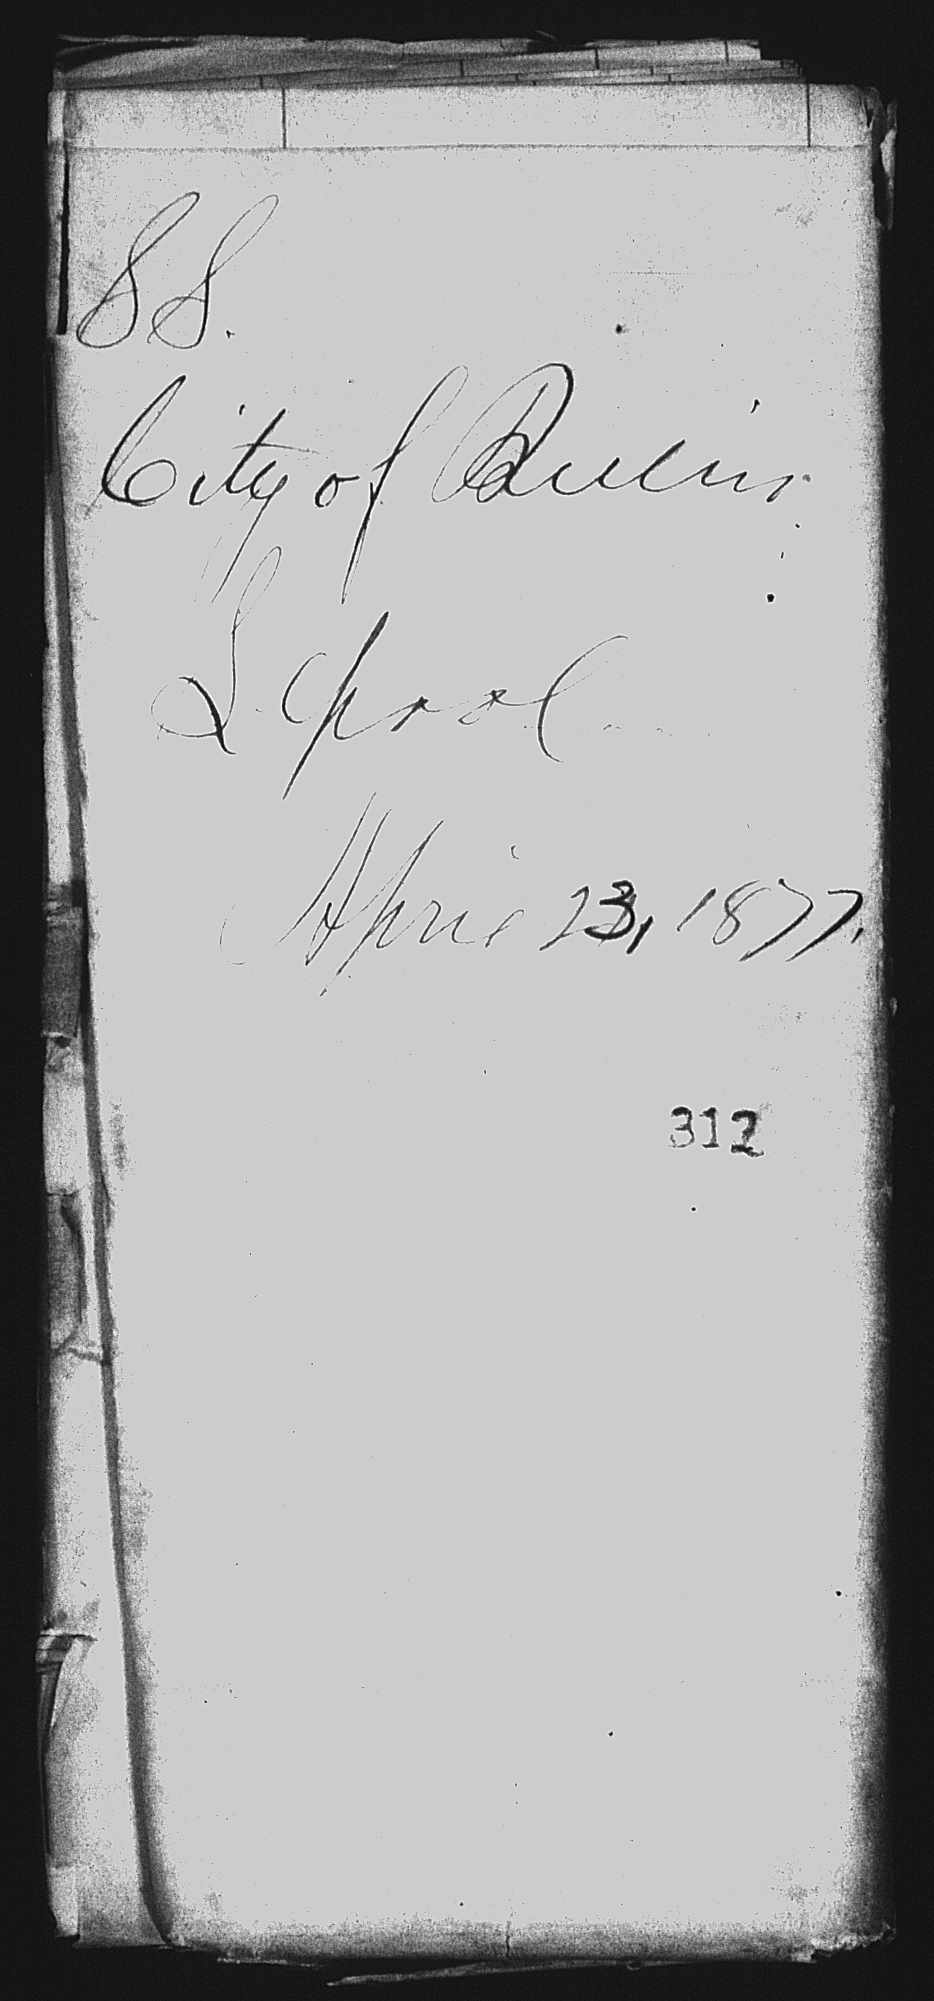 SS.
City of Berlin
L'pool
April 23, 1877.
312